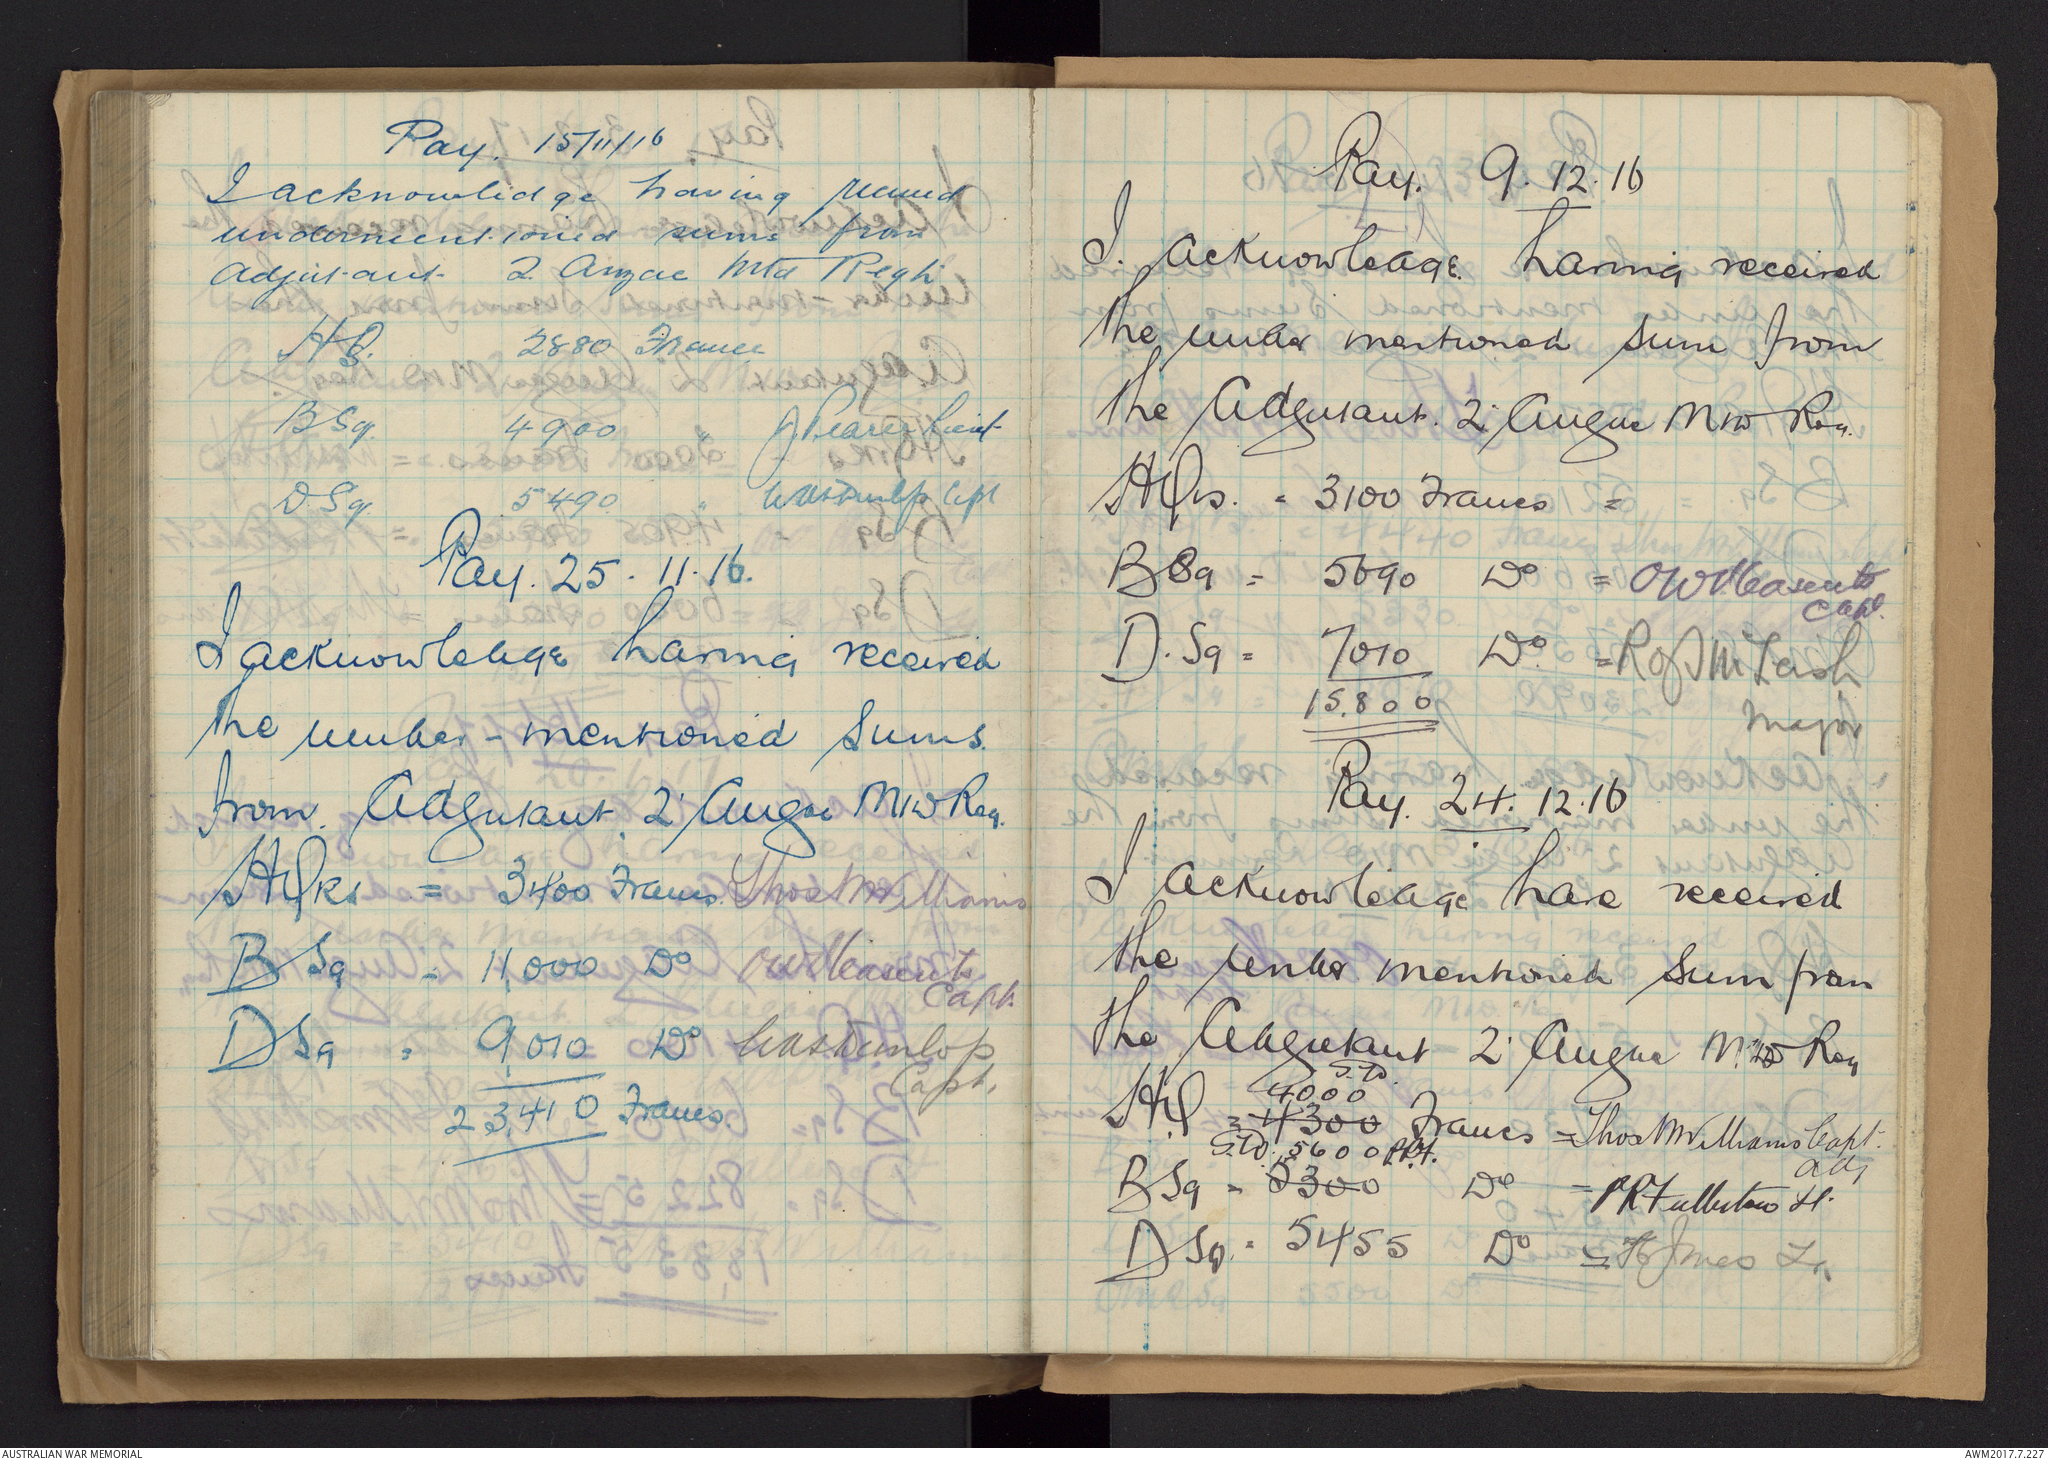 Pay. 15/11/16
I acknowlidge having recved
undermentioned sums from
Adjutant 2 Anzac Mtd Regt
HQ. 2880 Francs
B Sq. 4900 " J Pearce Lieut
D. Sq. 5490 " WasDunlop Capt
Pay. 25. 11. 16.
I acknowleage having received
the under-mentioned Sums.
from. Adgutant. 2' Anzac Mtd Reg.
HQrs = 3400 Francs. Thos McWilliams
B Sq = 11,000 Do
Capt.
D Sq = 9,010 Do WasDunlop
Capt.
23,410 Francs
Pay. 9. 12. 16
I. acknowleage. having received
the under mentioned Sum from
the Adgutant. 2' Anzac Mtd Reg.
HQrs. = 3100 Francs =
B Sq = 5690 Do =
Capt.
D. Sq = 7010 Do =
Major
15.800
Pay. 24. 12. 16
I acknowleage have received
the under mentioned Sum from
the Adgutant 2' Anzac Mtd Reg
S.D.
4000
HQ = 4300 Francs = Thos McWilliams Capt.
Adj
S.D. 5600 P.R.F.
B Sq = 5300 Do = P R Fullerton Lt.
D Sq. = 5455 Do =
AUSTRALIAN WAR MEMORIAL
AWM2017.7.227